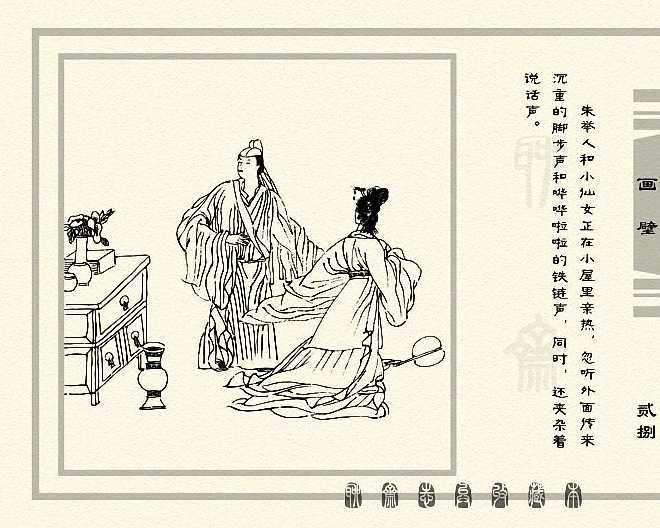 画壁
贰捌
朱举人和小仙女正在小屋里亲热，忽听外面传来
沉重的脚步声和哗哗啦啦的铁链声，同时，还夹杂着
说话声。
聊斋志异收藏本